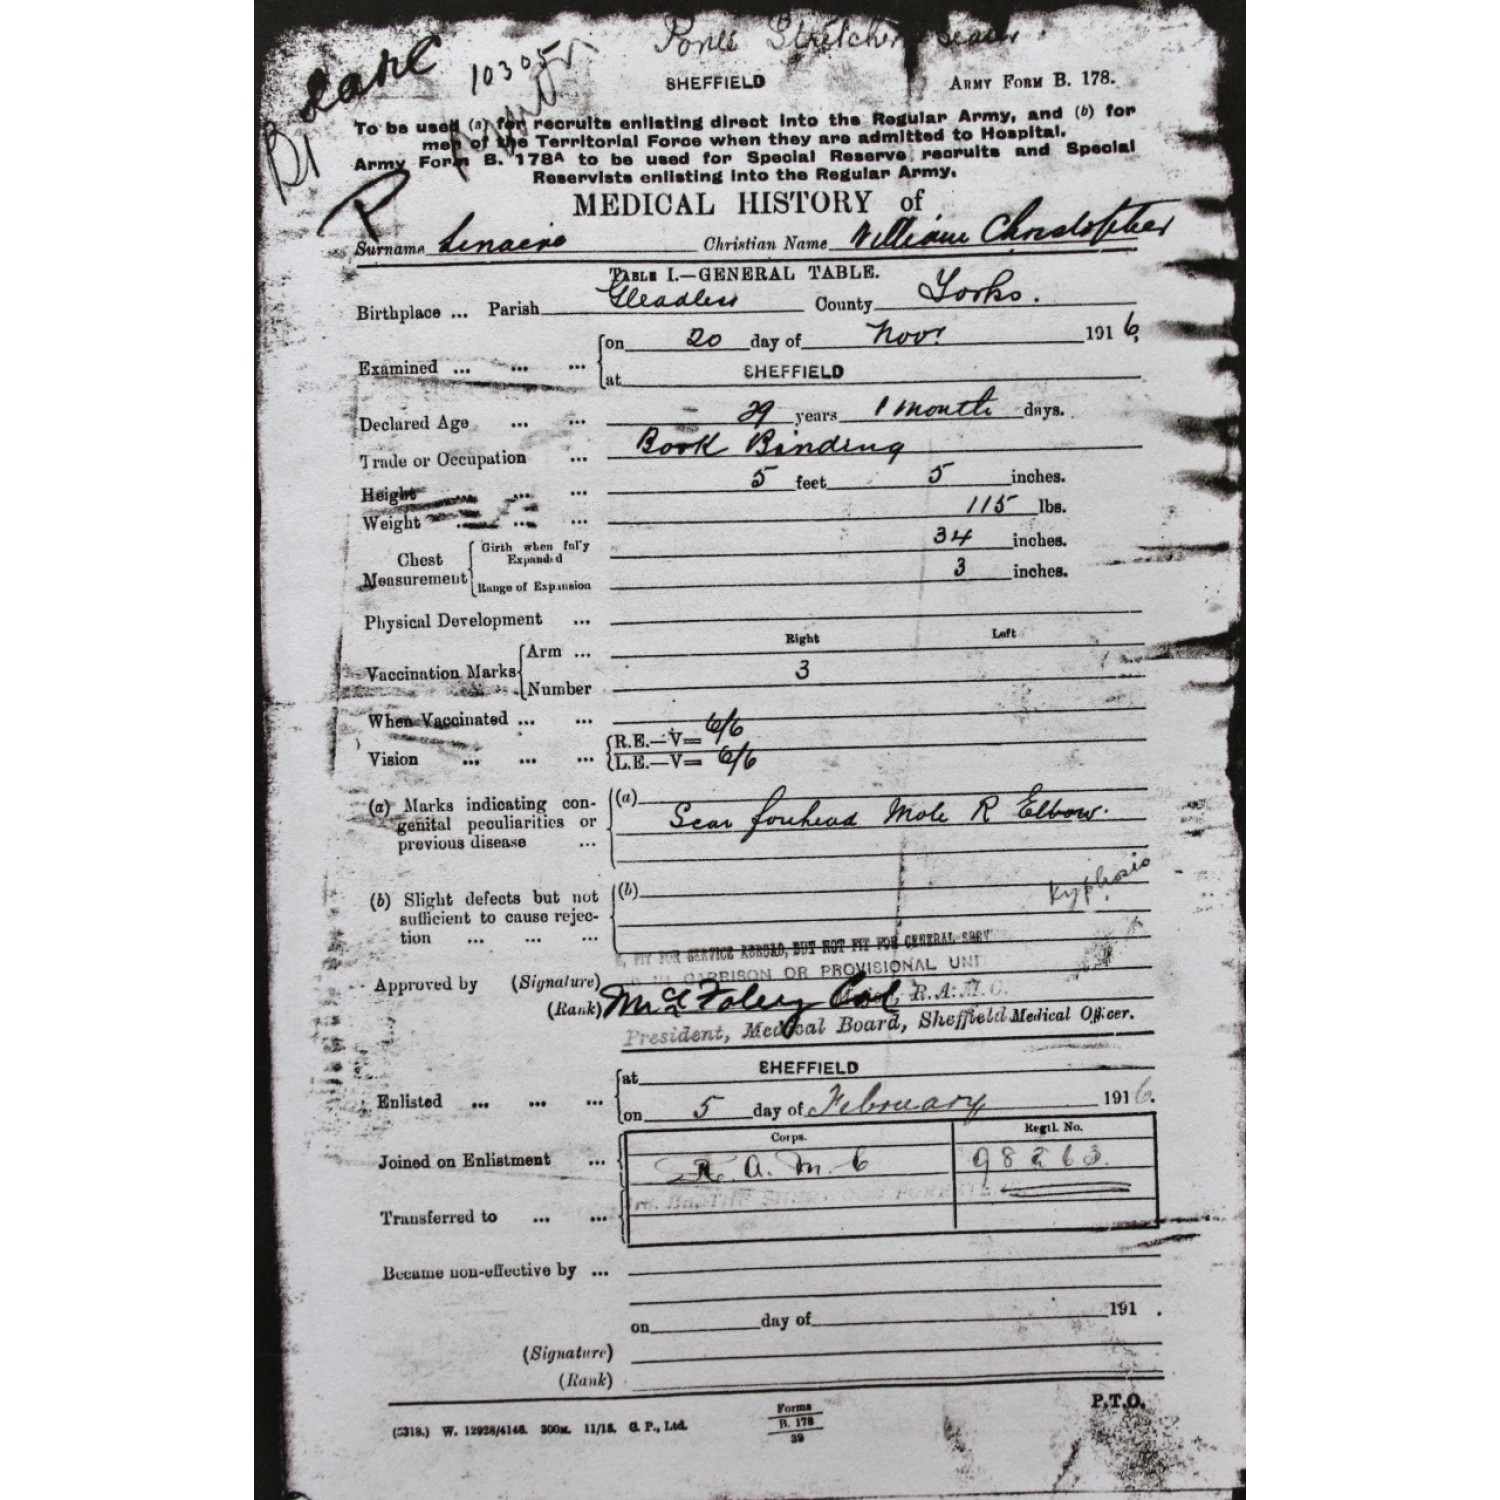 Stretcher
10305
SHEFFIELD
ARMY FORM B. 178.
To be used (a) for recruits enlisting direct into the Regular Army, and (b) for
men of the Territorial Force when they are admitted to Hospital.
Army Form B. 178A to be used for Special Reserve recruits and Special
Reservists enlisting into the Regular Army.
B1
P
MEDICAL HISTORY of
Surname Linacre Christian Name William Christopher
TABLE I.—GENERAL TABLE.
Birthplace ... Parish Gleadless County Yorks.
Examined ... ... ... on 20 day of Novr 1916,
at SHEFFIELD
Declared Age ... ... 29 years 1 month days.
Trade or Occupation ... Book Binding
Height ... ... ... 5 feet 5 inches.
Weight ... ... ... 115 lbs.
Chest Measurement Girth when fully Expanded 34 inches.
Range of Expansion 3 inches.
Physical Development ...
Right Left
Vaccination Marks Arm ...
Number 3
When Vaccinated ... ...
Vision ... ... ... R.E.—V= 6/6
L.E.—V= 6/6
(a) Marks indicating con- (a)
genital peculiarities or Scar forehead Mole R Elbow.
previous disease ...
(b) Slight defects but not (b) Kyphosis
sufficient to cause rejec-
tion ... ... ...
FIT FOR SERVICE ABROAD, BUT NOT FIT FOR GENERAL SERV
IN GARRISON OR PROVISIONAL UNI
Approved by (Signature)
(Rank) Col R.A.M.C.
President, Medical Board, Sheffield Medical Officer.
Enlisted ... ... ... at SHEFFIELD
on 5 day of February 1916.
Corps. Regtl. No.
Joined on Enlistment ... R.A.M.C 98263
THE SHERWOOD FORESTE
Transferred to ... ...
Became non-effective by ...
on day of 191 .
(Signature)
(Rank)
P.T.O.
(5318.) W. 12928/4146. 300M. 11/15. G. P., Ltd.
Forms
B. 178
39